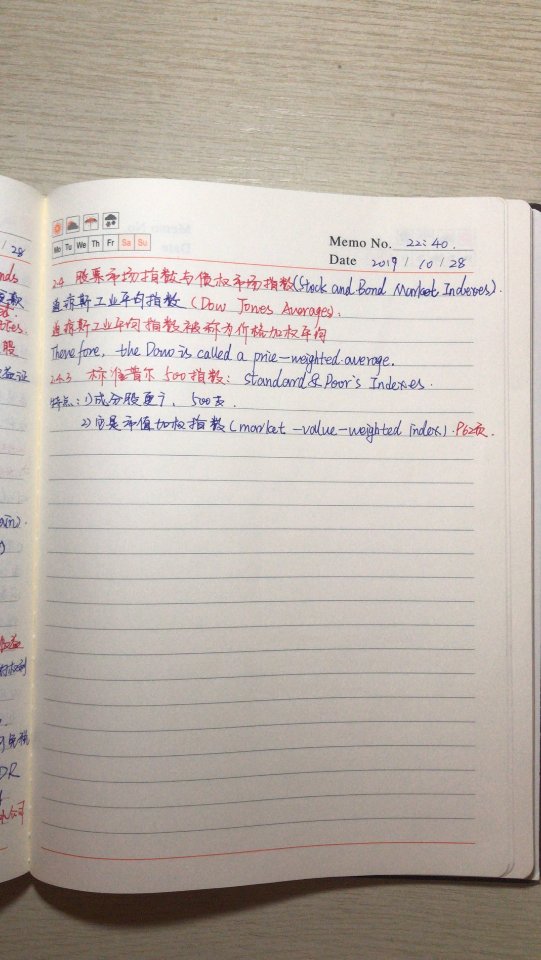 Memo No. 22:40.
Mo Tu We Th Fr Sa Su
Date 2019 / 10 / 28
2.4 股票市场指数与债权市场指数(Stock and Bond Market Indexes).
道琼斯工业平均指数 (Dow Jones Averages).
道琼斯工业平均指数被称为价格加权平均
Therefore, the Dow is called a price-weighted average.
2.4.3 标准普尔500指数: Standard & Poor's Indexes.
特点: 1)成分股更广, 500支.
2)它是市值加权指数(market-value-weighted index). P62页.
/ 28
nds
股
益证
DR
公司